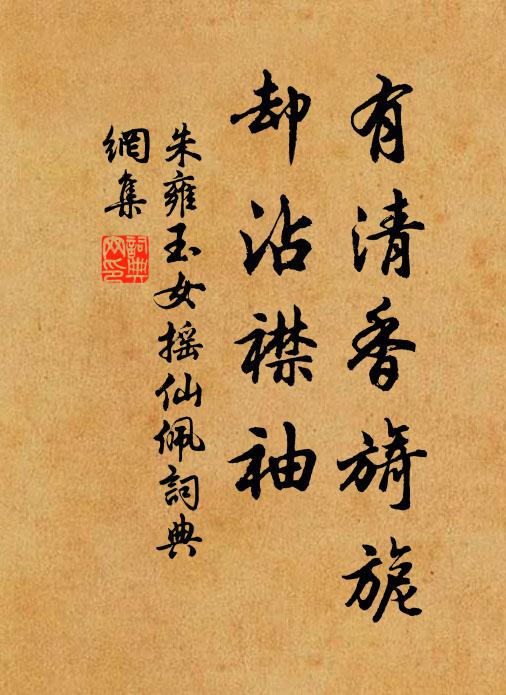 有清香旖旎
却沾襟袖
朱雍玉女摇仙佩詞典
網集
詞典
网印